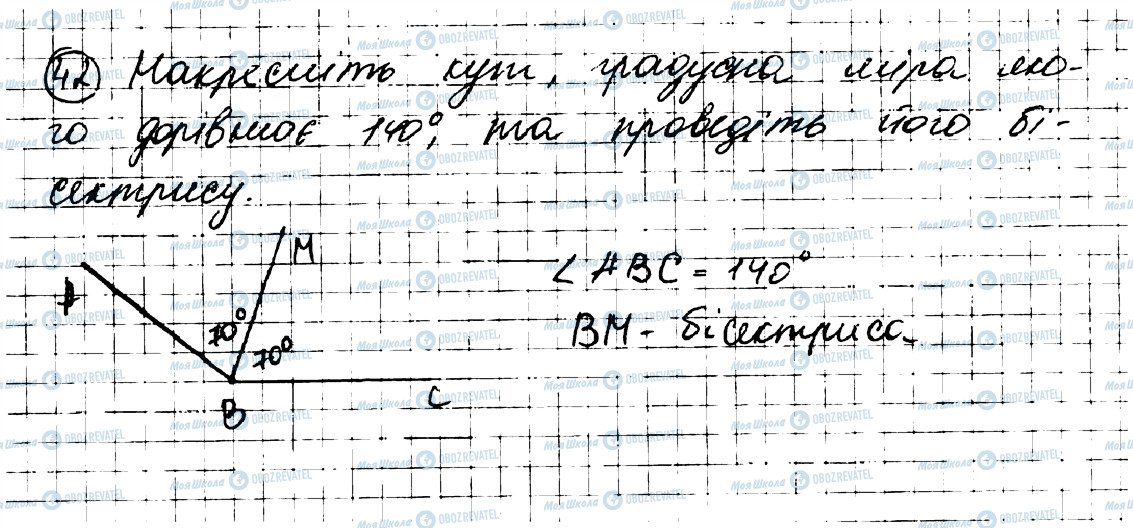 42 Накресліть кут, градусна міра яко-
го дорівнює 140°, та проведіть його бі-
сектрису.
M
∠ABC = 140°
A
70°
BM - бісектриса.
70°
C
B
МояШкола OBOZREVATEL